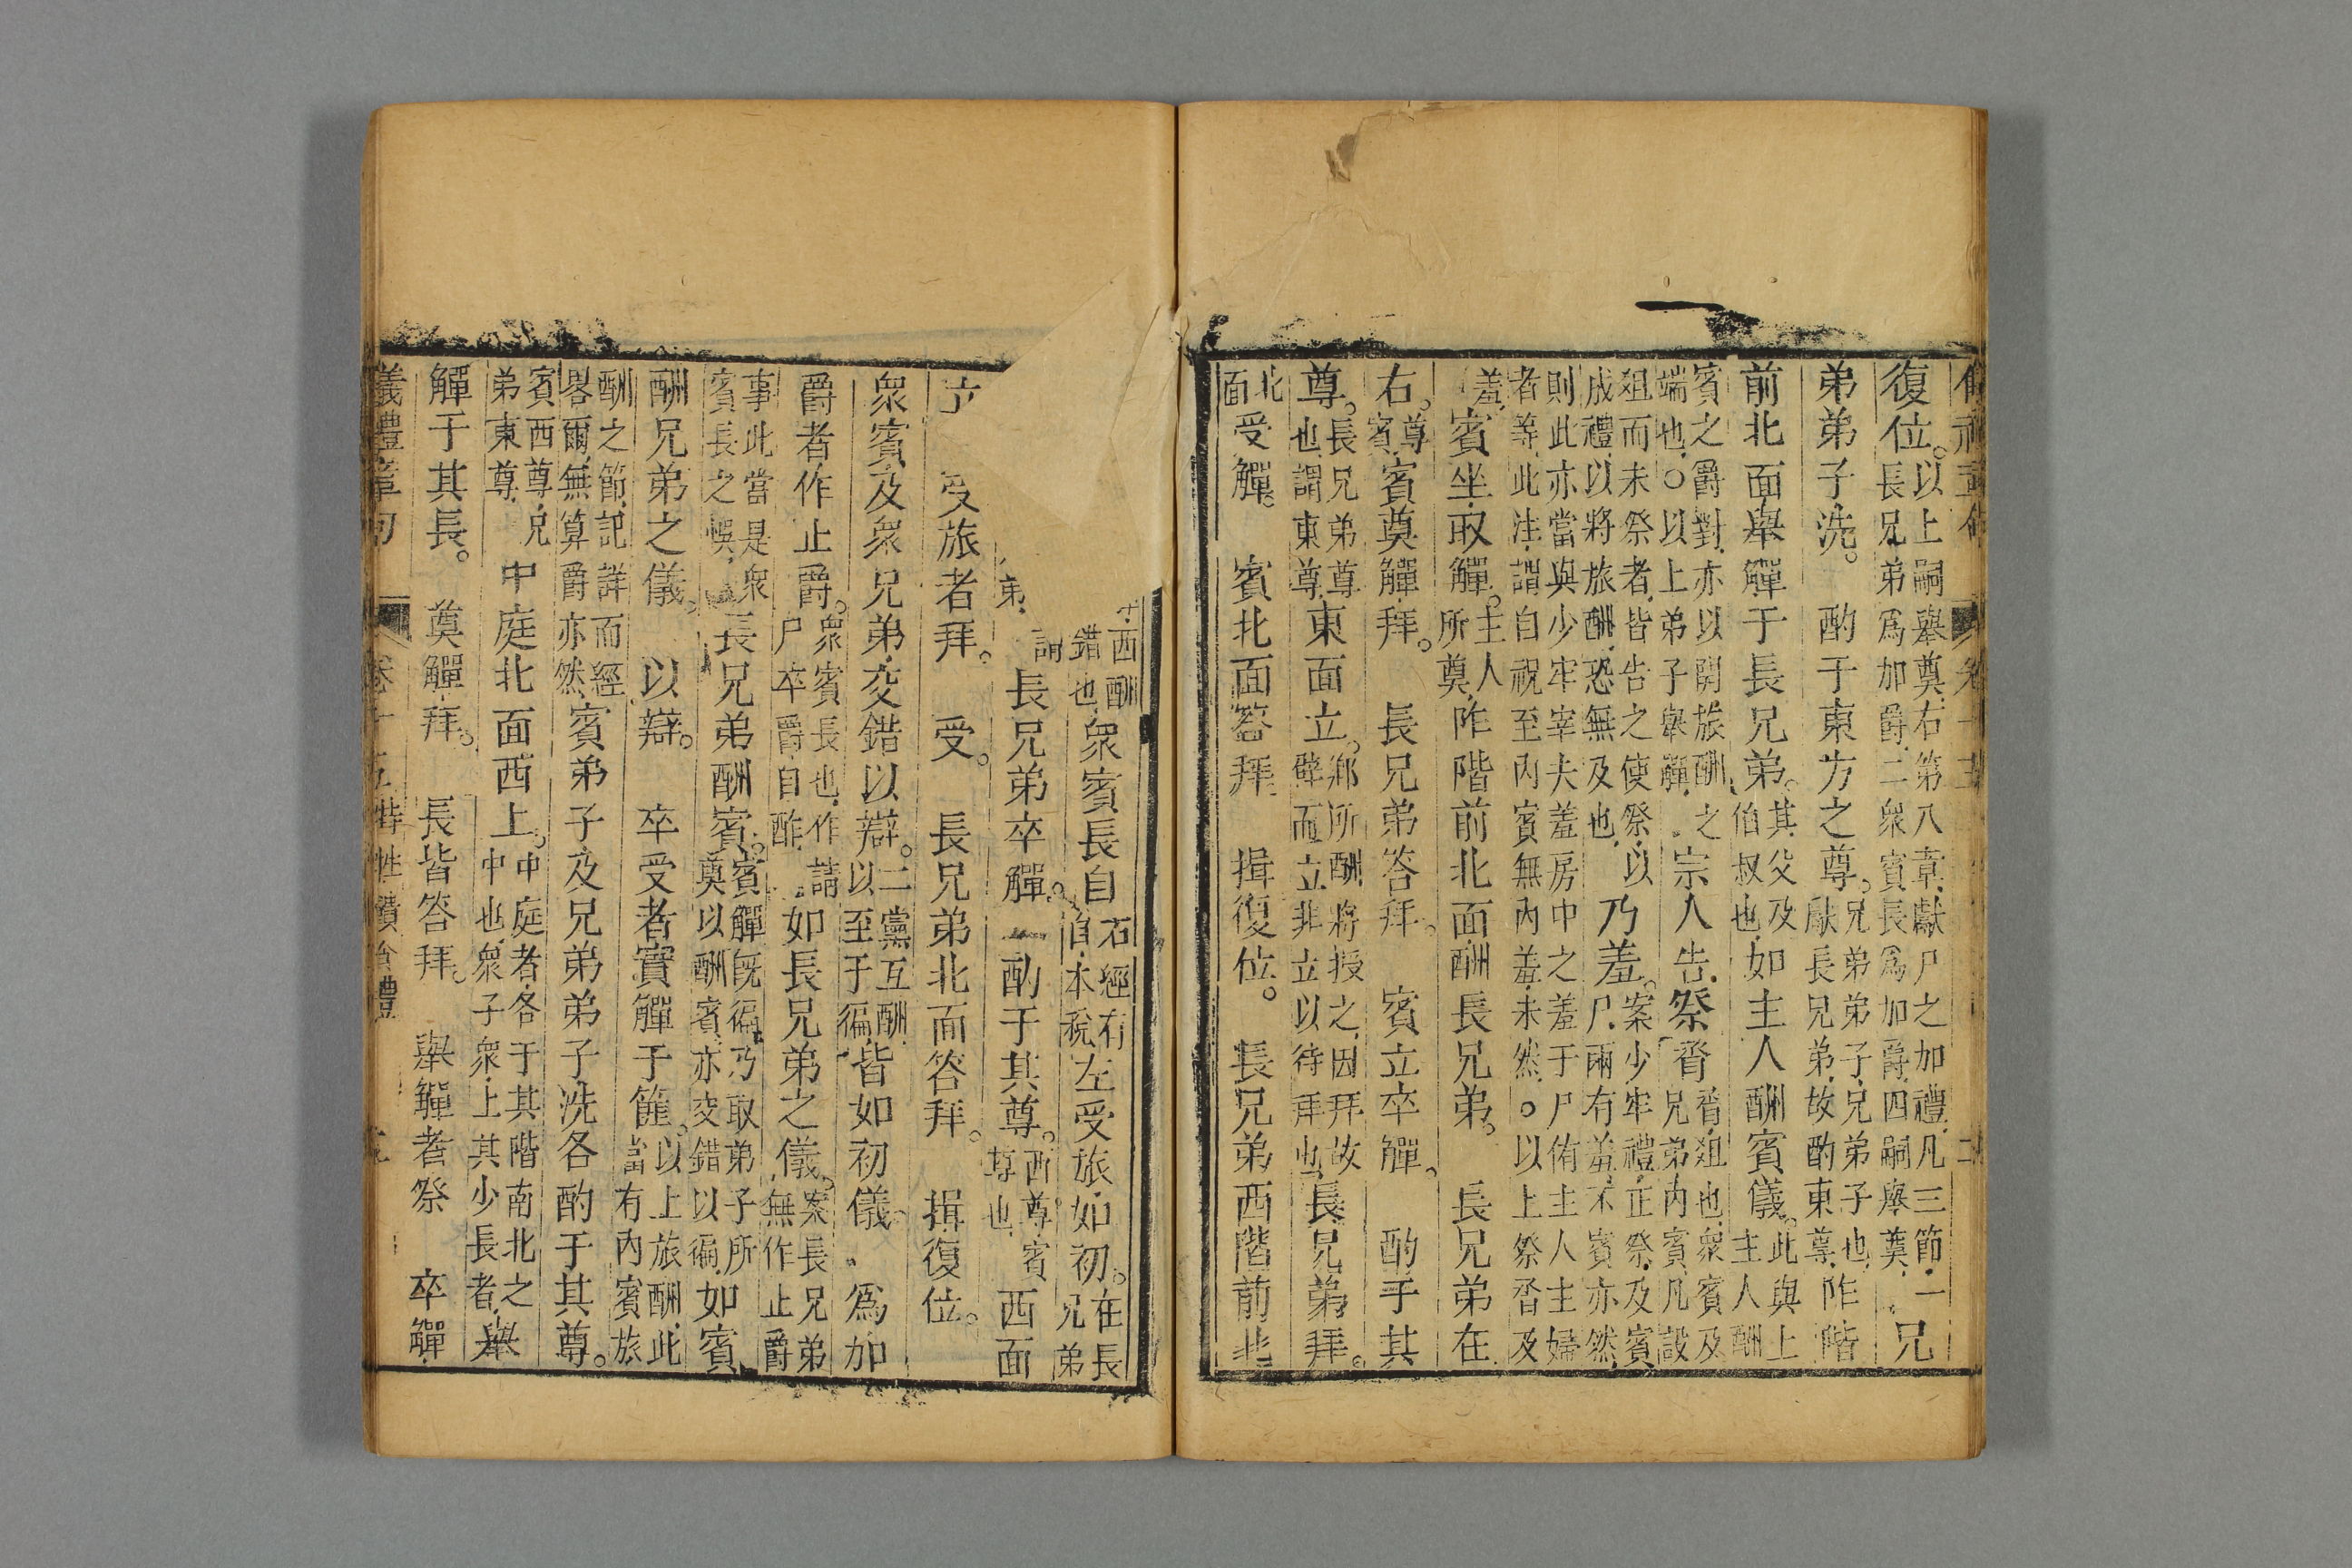 復位。以上嗣舉奠右第八章獻尸之加禮凡三節一長兄弟爲加爵二衆賓長爲加爵四嗣舉奠兄
弟弟子洗。酌于東方之尊。兄弟弟子兄弟弟子也獻長兄弟故酌東尊阼階
前北面舉觶于長兄弟。其父及伯叔也如主人酬賓儀。此與上主人酬
賓之爵對亦以開旅酬之端也○以上弟子舉觶宗人告祭脀脀俎也衆賓及兄弟内賓凡設
俎而未祭者皆告之使祭以成禮以將旅酬恐無及也乃羞。案少牢禮正祭及賓尸兩有羞不賓亦然
則此亦當與少牢宰夫羞房中之羞于尸侑主人主婦者等此注謂自祝至内賓無内羞未然○以上祭脀及
羞賓坐取觶。主人所奠阼階前北面酬長兄弟。長兄弟在
右。尊賓賓奠觶拜。長兄弟答拜。賓立卒觶。酌于其
尊。長兄弟尊也謂東尊東面立。鄉所酬將授之因拜故辟而立非立以待拜也長兄弟拜。
北面受觶。賓北面答拜。揖復位。長兄弟西階前北
西酬錯也衆賓長自石經有自本稅左受旅如初。在長兄弟
弟謂長兄弟卒觶。酌于其尊。西尊賓尊也西面
立受旅者拜。受。長兄弟北面答拜。揖復位。
衆賓及衆兄弟交錯以辯。二黨互酬以至于徧皆如初儀爲加
爵者作止爵。衆賓長也作請尸卒爵自酢如長兄弟之儀。案長兄弟無作止爵
事此當是衆賓長之悞長兄弟酬賓。賓觶既徧乃取弟子所奠以酬賓亦交錯以徧如賓
酬兄弟之儀。以辯。卒受者實觶于篚。以上旅酬此當有内賓旅
酬之節記詳而經畧爾無算爵亦然賓弟子及兄弟弟子洗各酌于其尊。
賓西尊兄弟東尊中庭北面西上。中庭者各于其階南北之中也衆子衆上其少長者舉
觶于其長。奠觶拜。長皆答拜。舉觶者祭卒觶
儀禮章句 卷十五特牲饋食禮